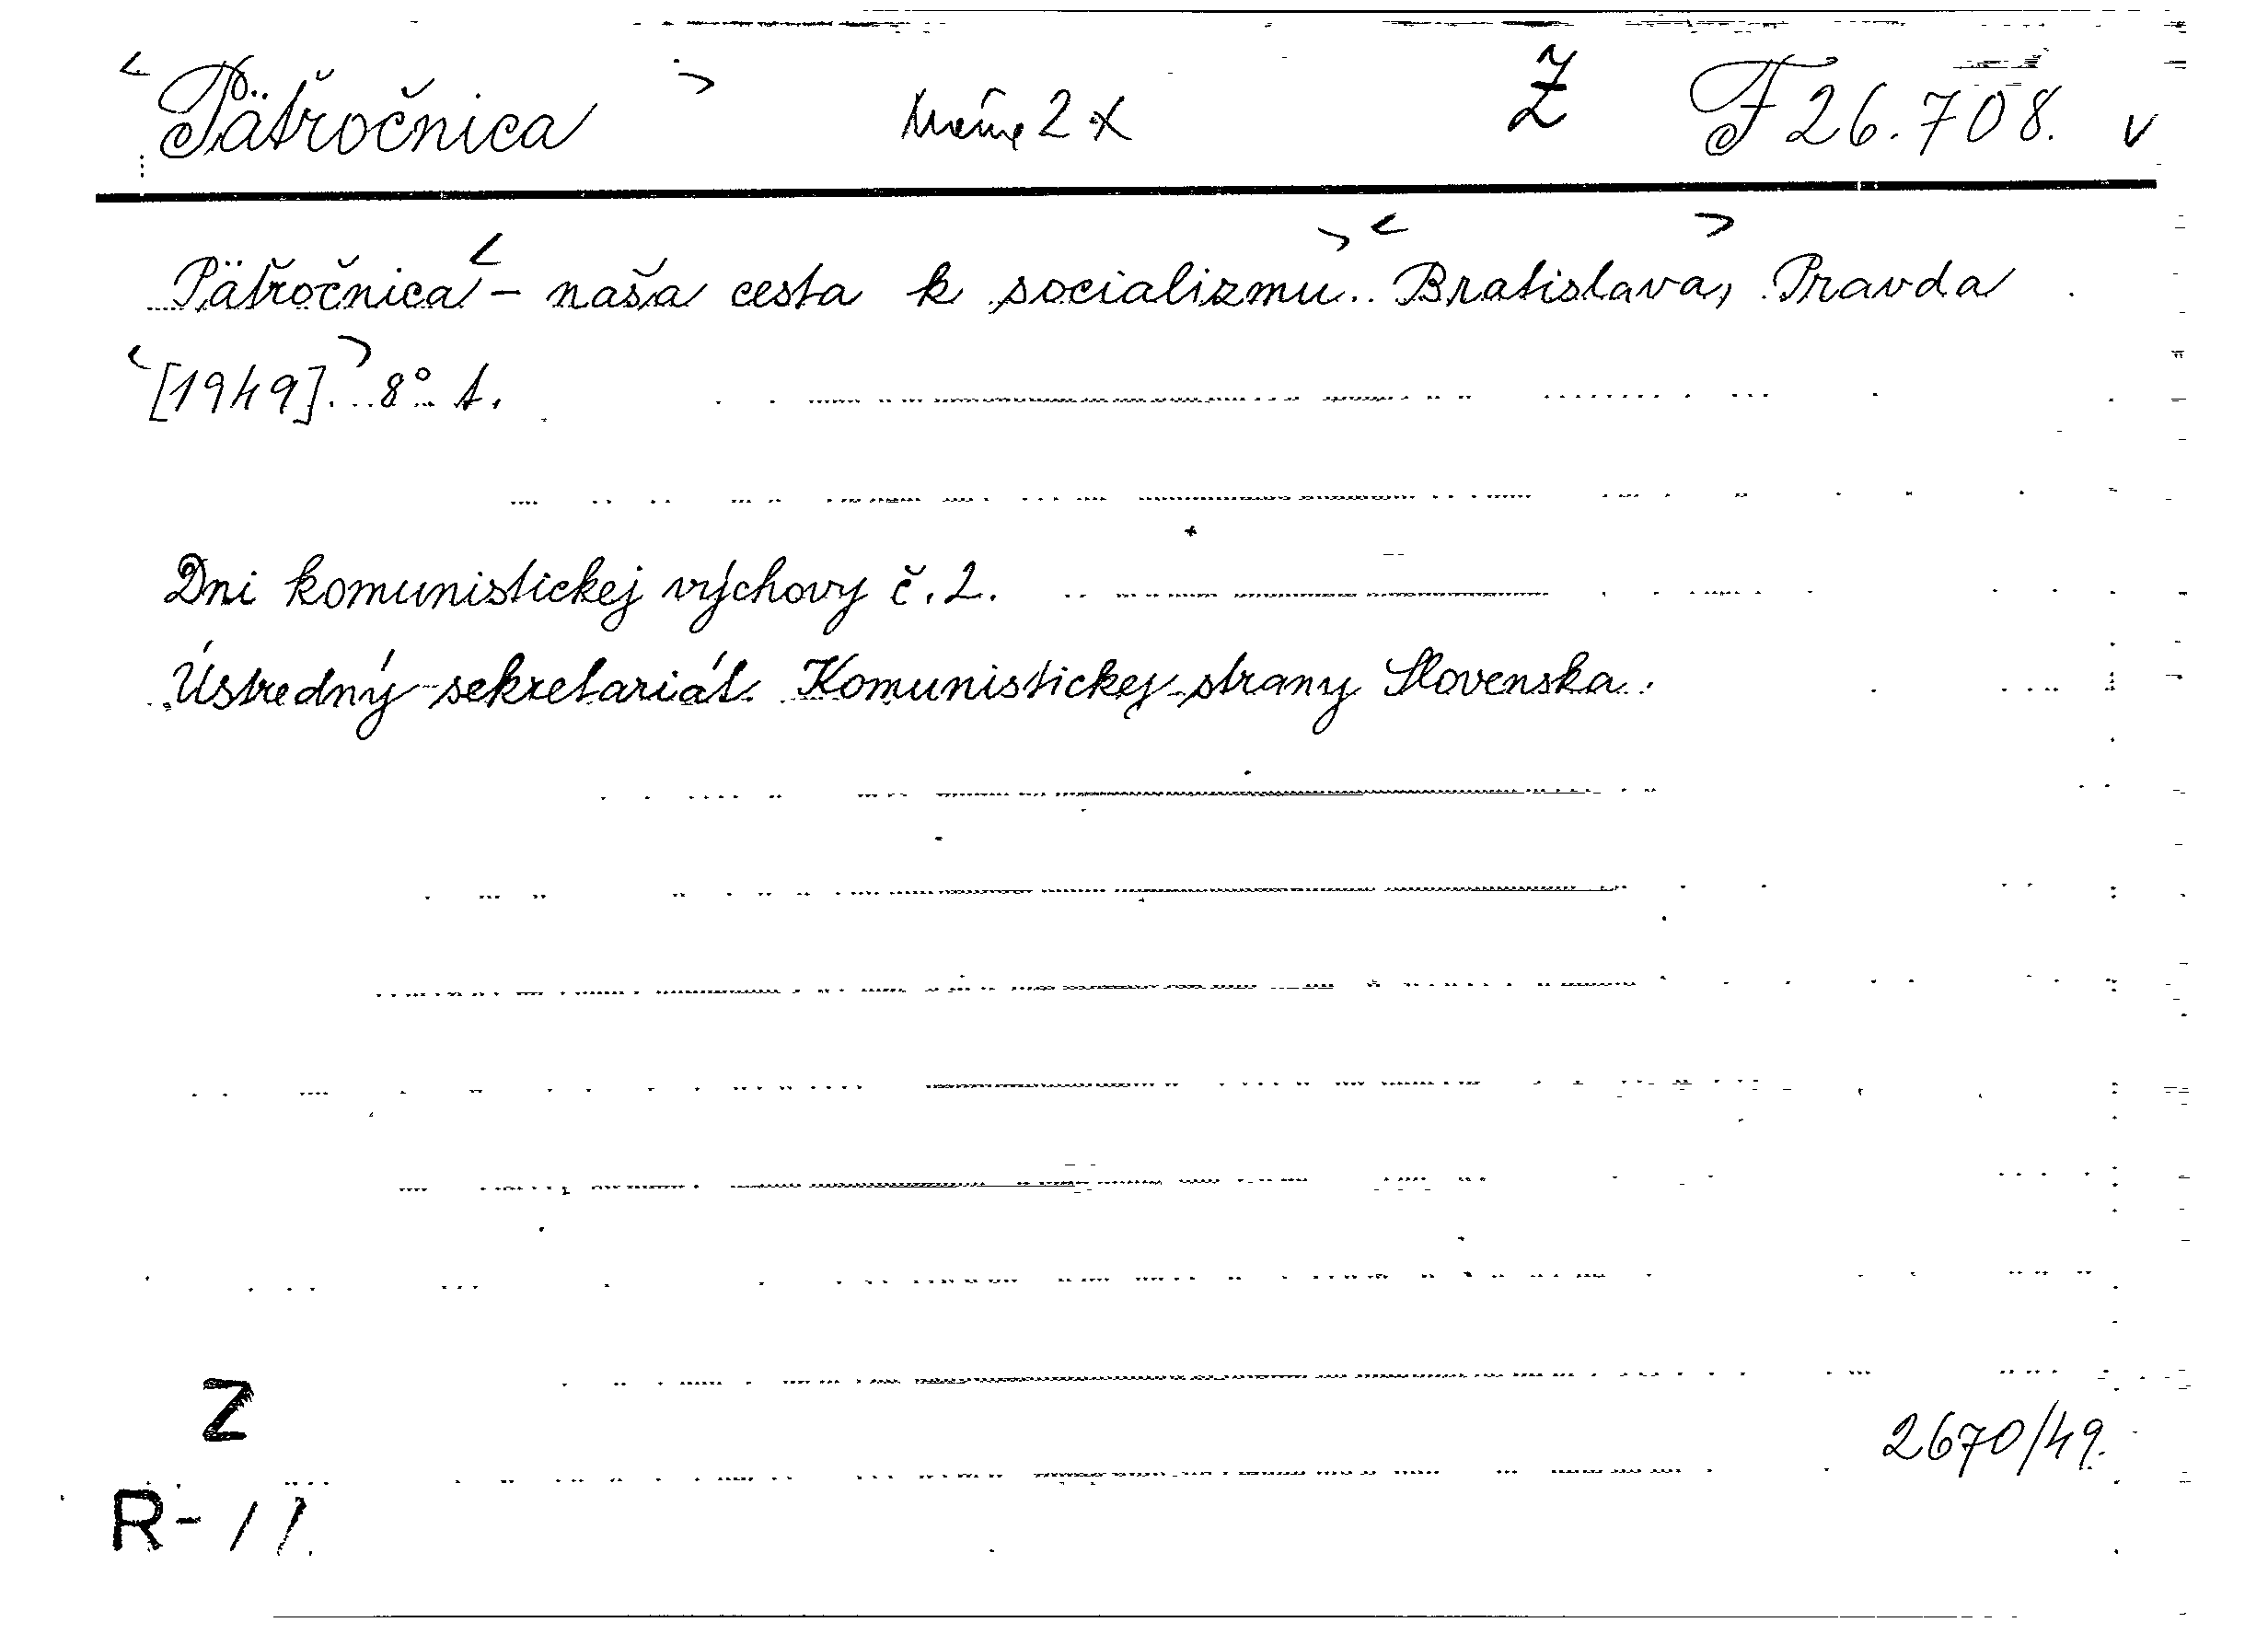 Päťročnica máme 2x Z F 26.708. v
Päťročnica - naša cesta k socializmu. Bratislava, Pravda
[1949]. 8° t.
Dni komunistickej výchovy č. 2.
Ústredný sekretariát Komunistickej strany Slovenska.
Z
2670/49.
R-11